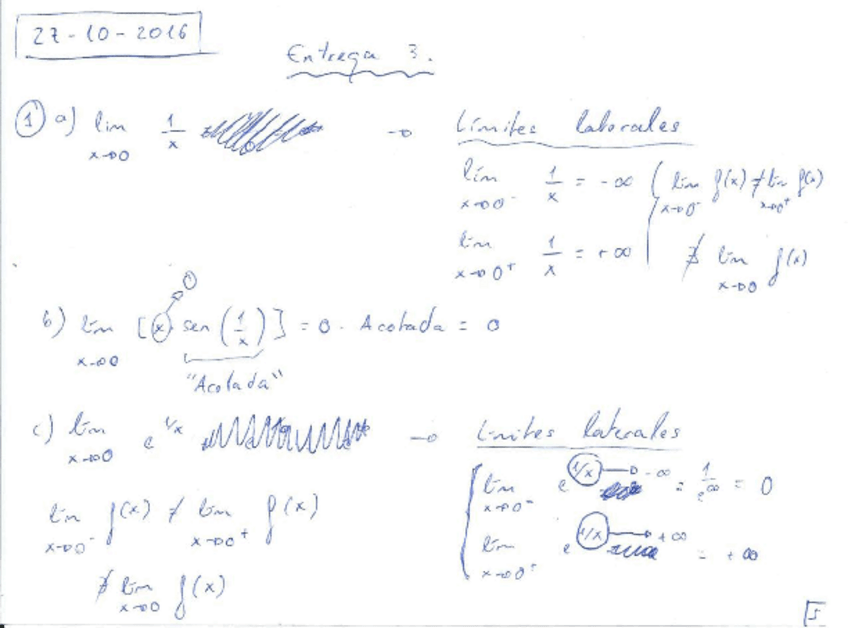 27-10-2016
Entrega 3.
① a) lim x→0 1/x → Límites laterales
lim x→0⁻ 1/x = -∞ ( lim x→0⁻ f(x) ≠ lim x→0⁺ f(x)
lim x→0⁺ 1/x = +∞ ∄ lim x→0 f(x)
b) lim x→0 [x sen(1/x)] = 0 · Acotada = 0
0
"Acotada"
c) lim x→0 e^1/x → Límites laterales
lim x→0⁻ e^1/x → -∞ = 1/e^∞ = 0
lim x→0⁻ f(x) ≠ lim x→0⁺ f(x)
lim x→0⁺ e^1/x → +∞ = +∞
∄ lim x→0 f(x)